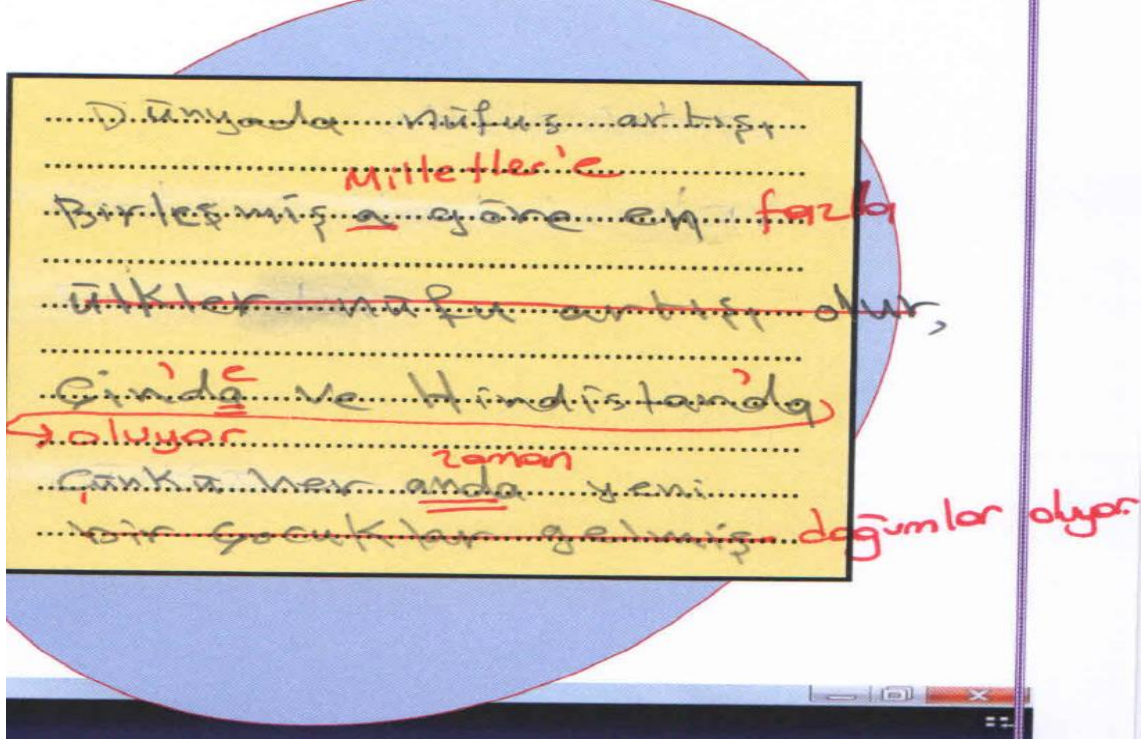 Dünyada nüfus artışı
Milletler'e
Birleşmiş a göre en fazla
ülkler nüfu artışı olur,
Çin'da e ve Hindistan'da
oluyor
zaman
Çünkü her anda yeni
bir çocuklar gelmiş. doğumlar oluyor.